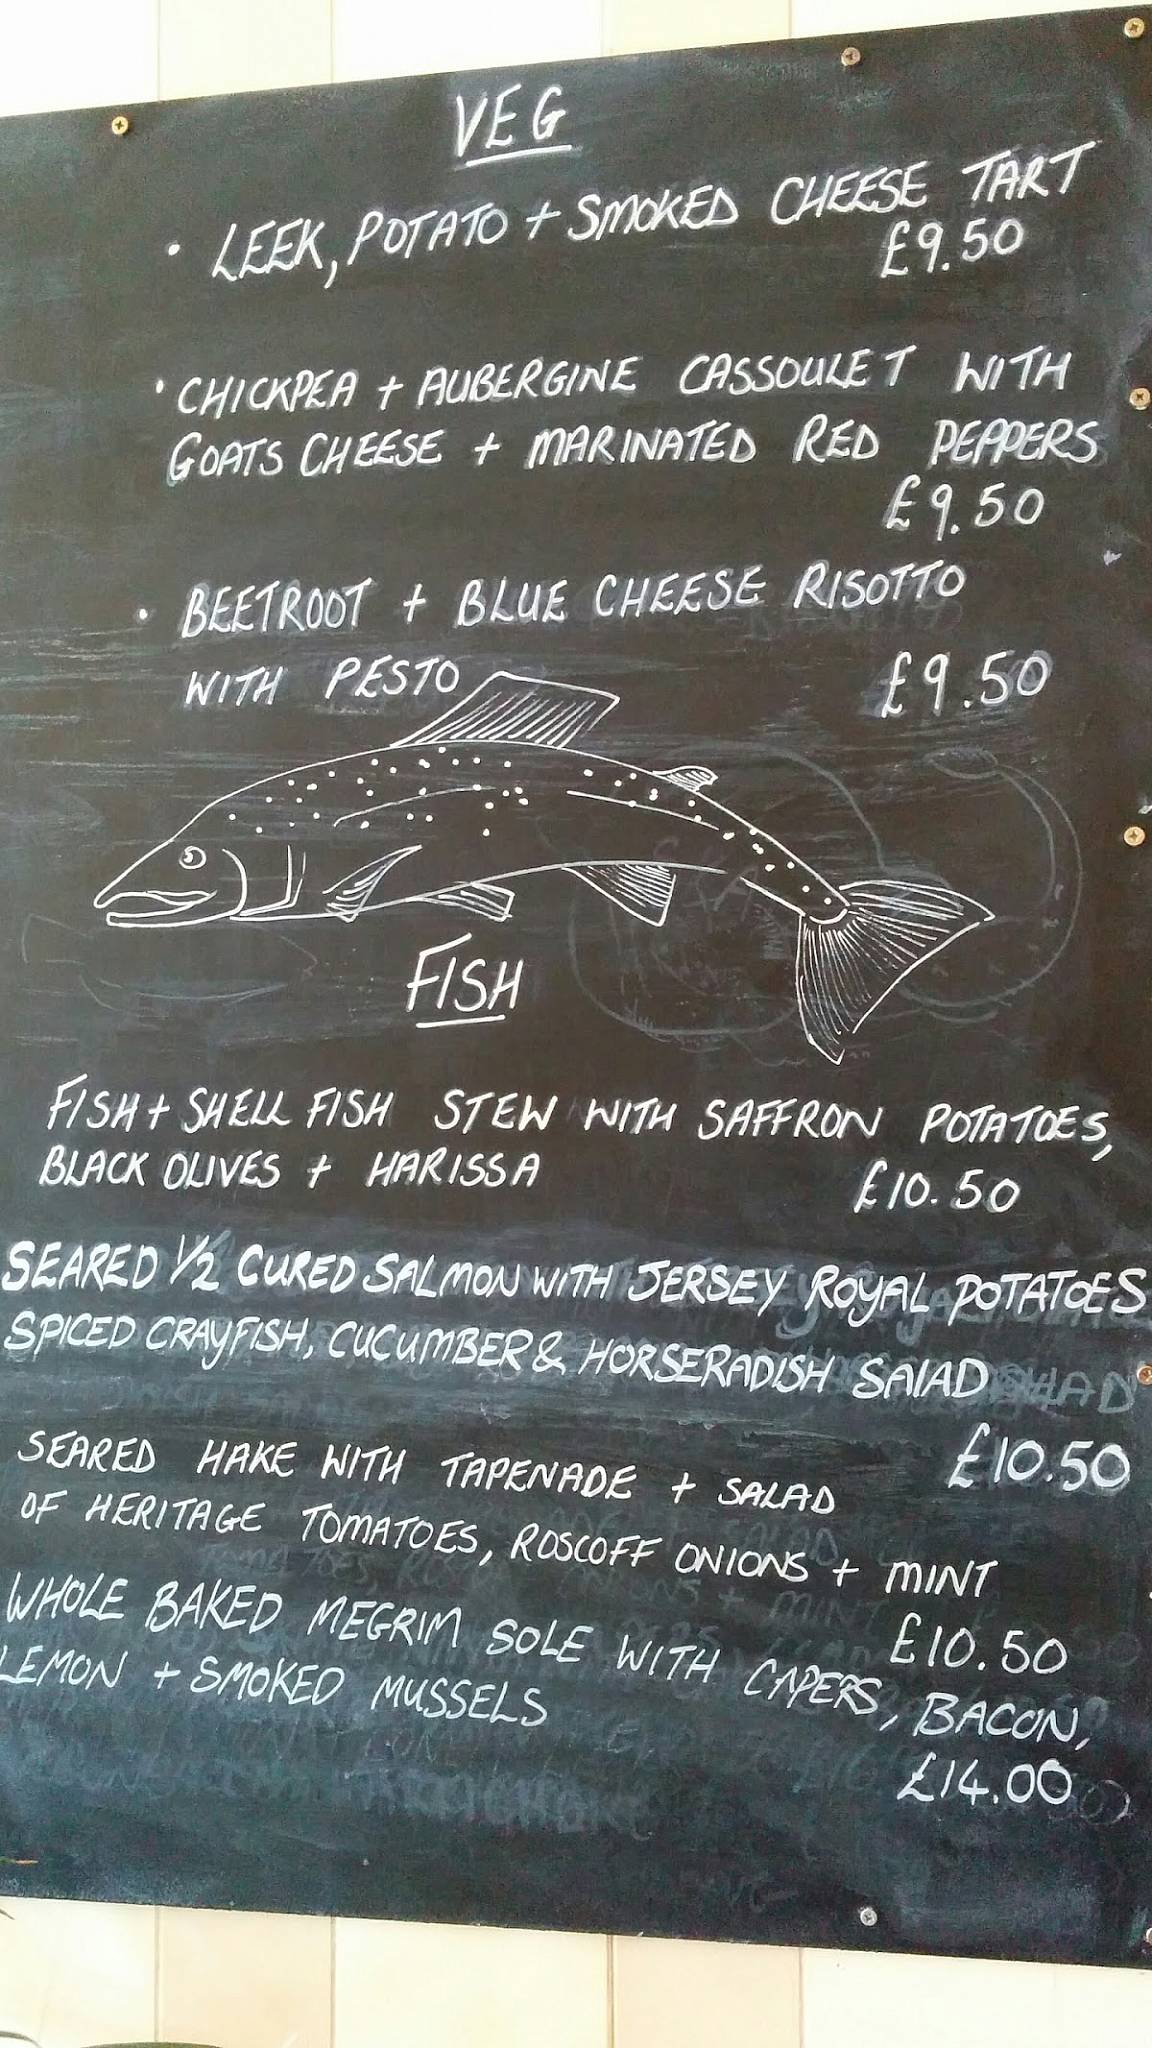 VEG
• LEEK, POTATO + SMOKED CHEESE TART
£9.50
• CHICKPEA + AUBERGINE CASSOULET WITH
GOATS CHEESE + MARINATED RED PEPPERS
£9.50
• BEETROOT + BLUE CHEESE RISOTTO
WITH PESTO £9.50
FISH
FISH + SHELL FISH STEW WITH SAFFRON POTATOES,
BLACK OLIVES + HARISSA £10.50
SEARED 1/2 CURED SALMON WITH JERSEY ROYAL POTATOES
SPICED CRAYFISH, CUCUMBER & HORSERADISH SALAD
£10.50
SEARED HAKE WITH TAPENADE + SALAD
OF HERITAGE TOMATOES, ROSCOFF ONIONS + MINT
£10.50
WHOLE BAKED MEGRIM SOLE WITH CAPERS, BACON,
LEMON + SMOKED MUSSELS
£14.00